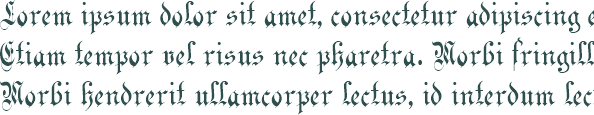 Lorem ipsum dolor sit amet, consectetur adipiscing
Etiam tempor vel risus nec pharetra. Morbi fringill
Morbi hendrerit ullamcorper lectus, id interdum lec